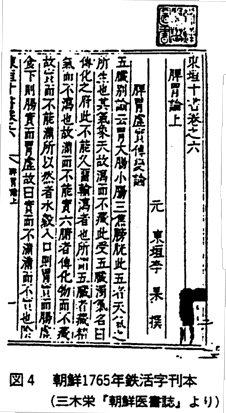 東垣十書卷之六
脾胃論上
元 東垣李 杲 撰
脾胃虛實傳變論
五臟別論云胃大腸小腸三焦膀胱此五者天氣之
所生也其氣象天故瀉而不藏此受五臟濁氣名曰
傳化之府此不能久留輸瀉者也所謂五臟者藏精
氣而不瀉也故滿而不能實六腑者傳化物而不藏
故實而不能滿所以然者水穀入口則胃實而腸虛
食下則腸實而胃虛故曰實而不滿滿而不實也
脾胃論上 一
図4 朝鮮1765年鉄活字刊本
(三木栄『朝鮮医書誌』より)